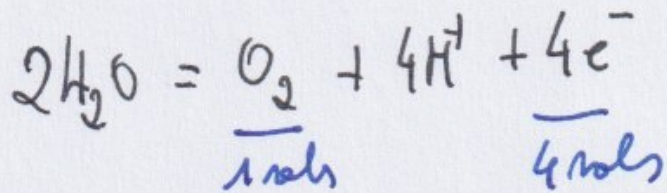 2H₂O = O₂ + 4H⁺ + 4e⁻
1 mols 4 mols